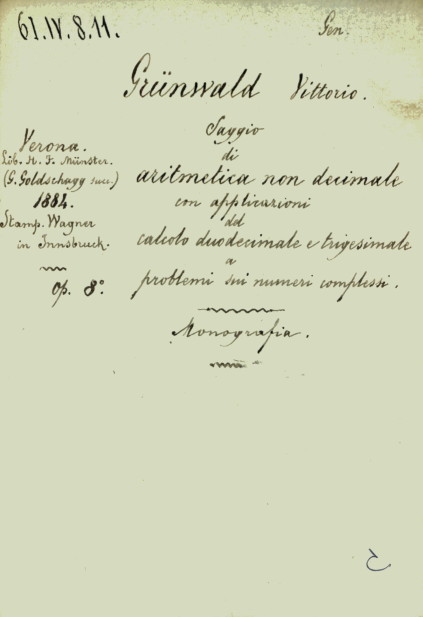 61.IV.8.11.
Gen.
Grünwald Vittorio.
Verona.
Lib. H. F. Münster.
(G. Goldschagg succ.)
1884.
Stamp. Wagner
in Innsbruck.
Op. 8º.
Saggio
di
aritmetica non decimale
con applicazioni
del
calcolo duodecimale e trigesimale
a
problemi sui numeri complessi.
Monografia.